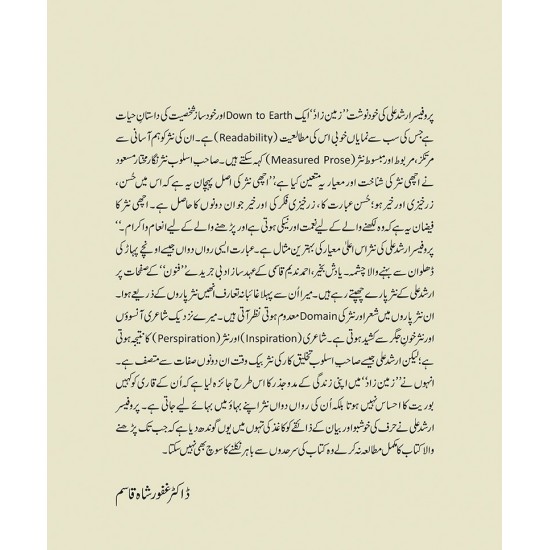 پروفیسر ارشد علی کی خود نوشت ’’زمین زاد‘‘ ایک Down to Earth اور خود ساز شخصیت کی داستانِ حیات
ہے جس کی سب سے نمایاں خوبی اس کی مطالعیت (Readability) ہے۔ ان کی نثر کو ہم آسانی سے
مرتکز، مربوط اور مبسوط نثر (Measured Prose) کہہ سکتے ہیں۔ صاحب اسلوب نثر نگار مختار مسعود
نے اچھی نثر کی شناخت اور معیار یہ متعین کیا ہے، ’’اچھی نثر کی اصل پہچان یہ ہے کہ اس میں حُسن،
زرخیزی اور خیر ہو؛ حُسن عبارت کا، زرخیزی فکر کی اور خیر جو ان دونوں کا حاصل ہے۔ اچھی نثر کا
فیضان یہ ہے کہ وہ لکھنے والے کے لیے نعمت اور نیکی ہوتی ہے اور پڑھنے والے کے لیے انعام و اکرام۔‘‘
پروفیسر ارشد علی کی نثر اس اعلیٰ معیار کی بہترین مثال ہے۔ عبارت ایسی رواں دواں جیسے اونچے پہاڑ کی
ڈھلوان سے بہنے والا چشمہ۔ یادش بخیر، احمد ندیم قاسمی کے عہد ساز ادبی جریدے ’’فنون‘‘ کے صفحات پر
ارشد علی کے نثر پارے چھپتے رہے ہیں۔ میرا اُن سے پہلا غائبانہ تعارف انھیں نثر پاروں کے ذریعے ہوا۔
ان نثر پاروں میں شعر اور نثر کی Domain معدوم ہوتی نظر آتی ہیں۔ میرے نزدیک شاعری آنسوؤں
اور نثر خونِ جگر سے کشید ہوتی ہے۔ شاعری (Inspiration) اور نثر (Perspiration) کا نتیجہ ہوتی
ہے؛ لیکن ارشد علی جیسے صاحب اسلوب تخلیق کار کی نثر بیک وقت ان دونوں صفات سے متصف ہے۔
انہوں نے ’’زمین زاد‘‘ میں اپنی زندگی کے مدو جذر کا اس طرح جائزہ لیا ہے کہ اُن کے قاری کو کہیں
بوریت کا احساس نہیں ہوتا بلکہ اُن کی رواں دواں نثر اپنے بہاؤ میں بہائے لیے جاتی ہے۔ پروفیسر
ارشد علی نے حرف کی خوشبو اور بیان کے ذائقے کو کاغذ کی تہوں میں یوں گوندھ دیا ہے کہ جب تک پڑھنے
والا کتاب کا مکمل مطالعہ نہ کر لے وہ کتاب کی سرحدوں سے باہر نکلنے کا سوچ بھی نہیں سکتا۔
ڈاکٹر غفور شاہ قاسم